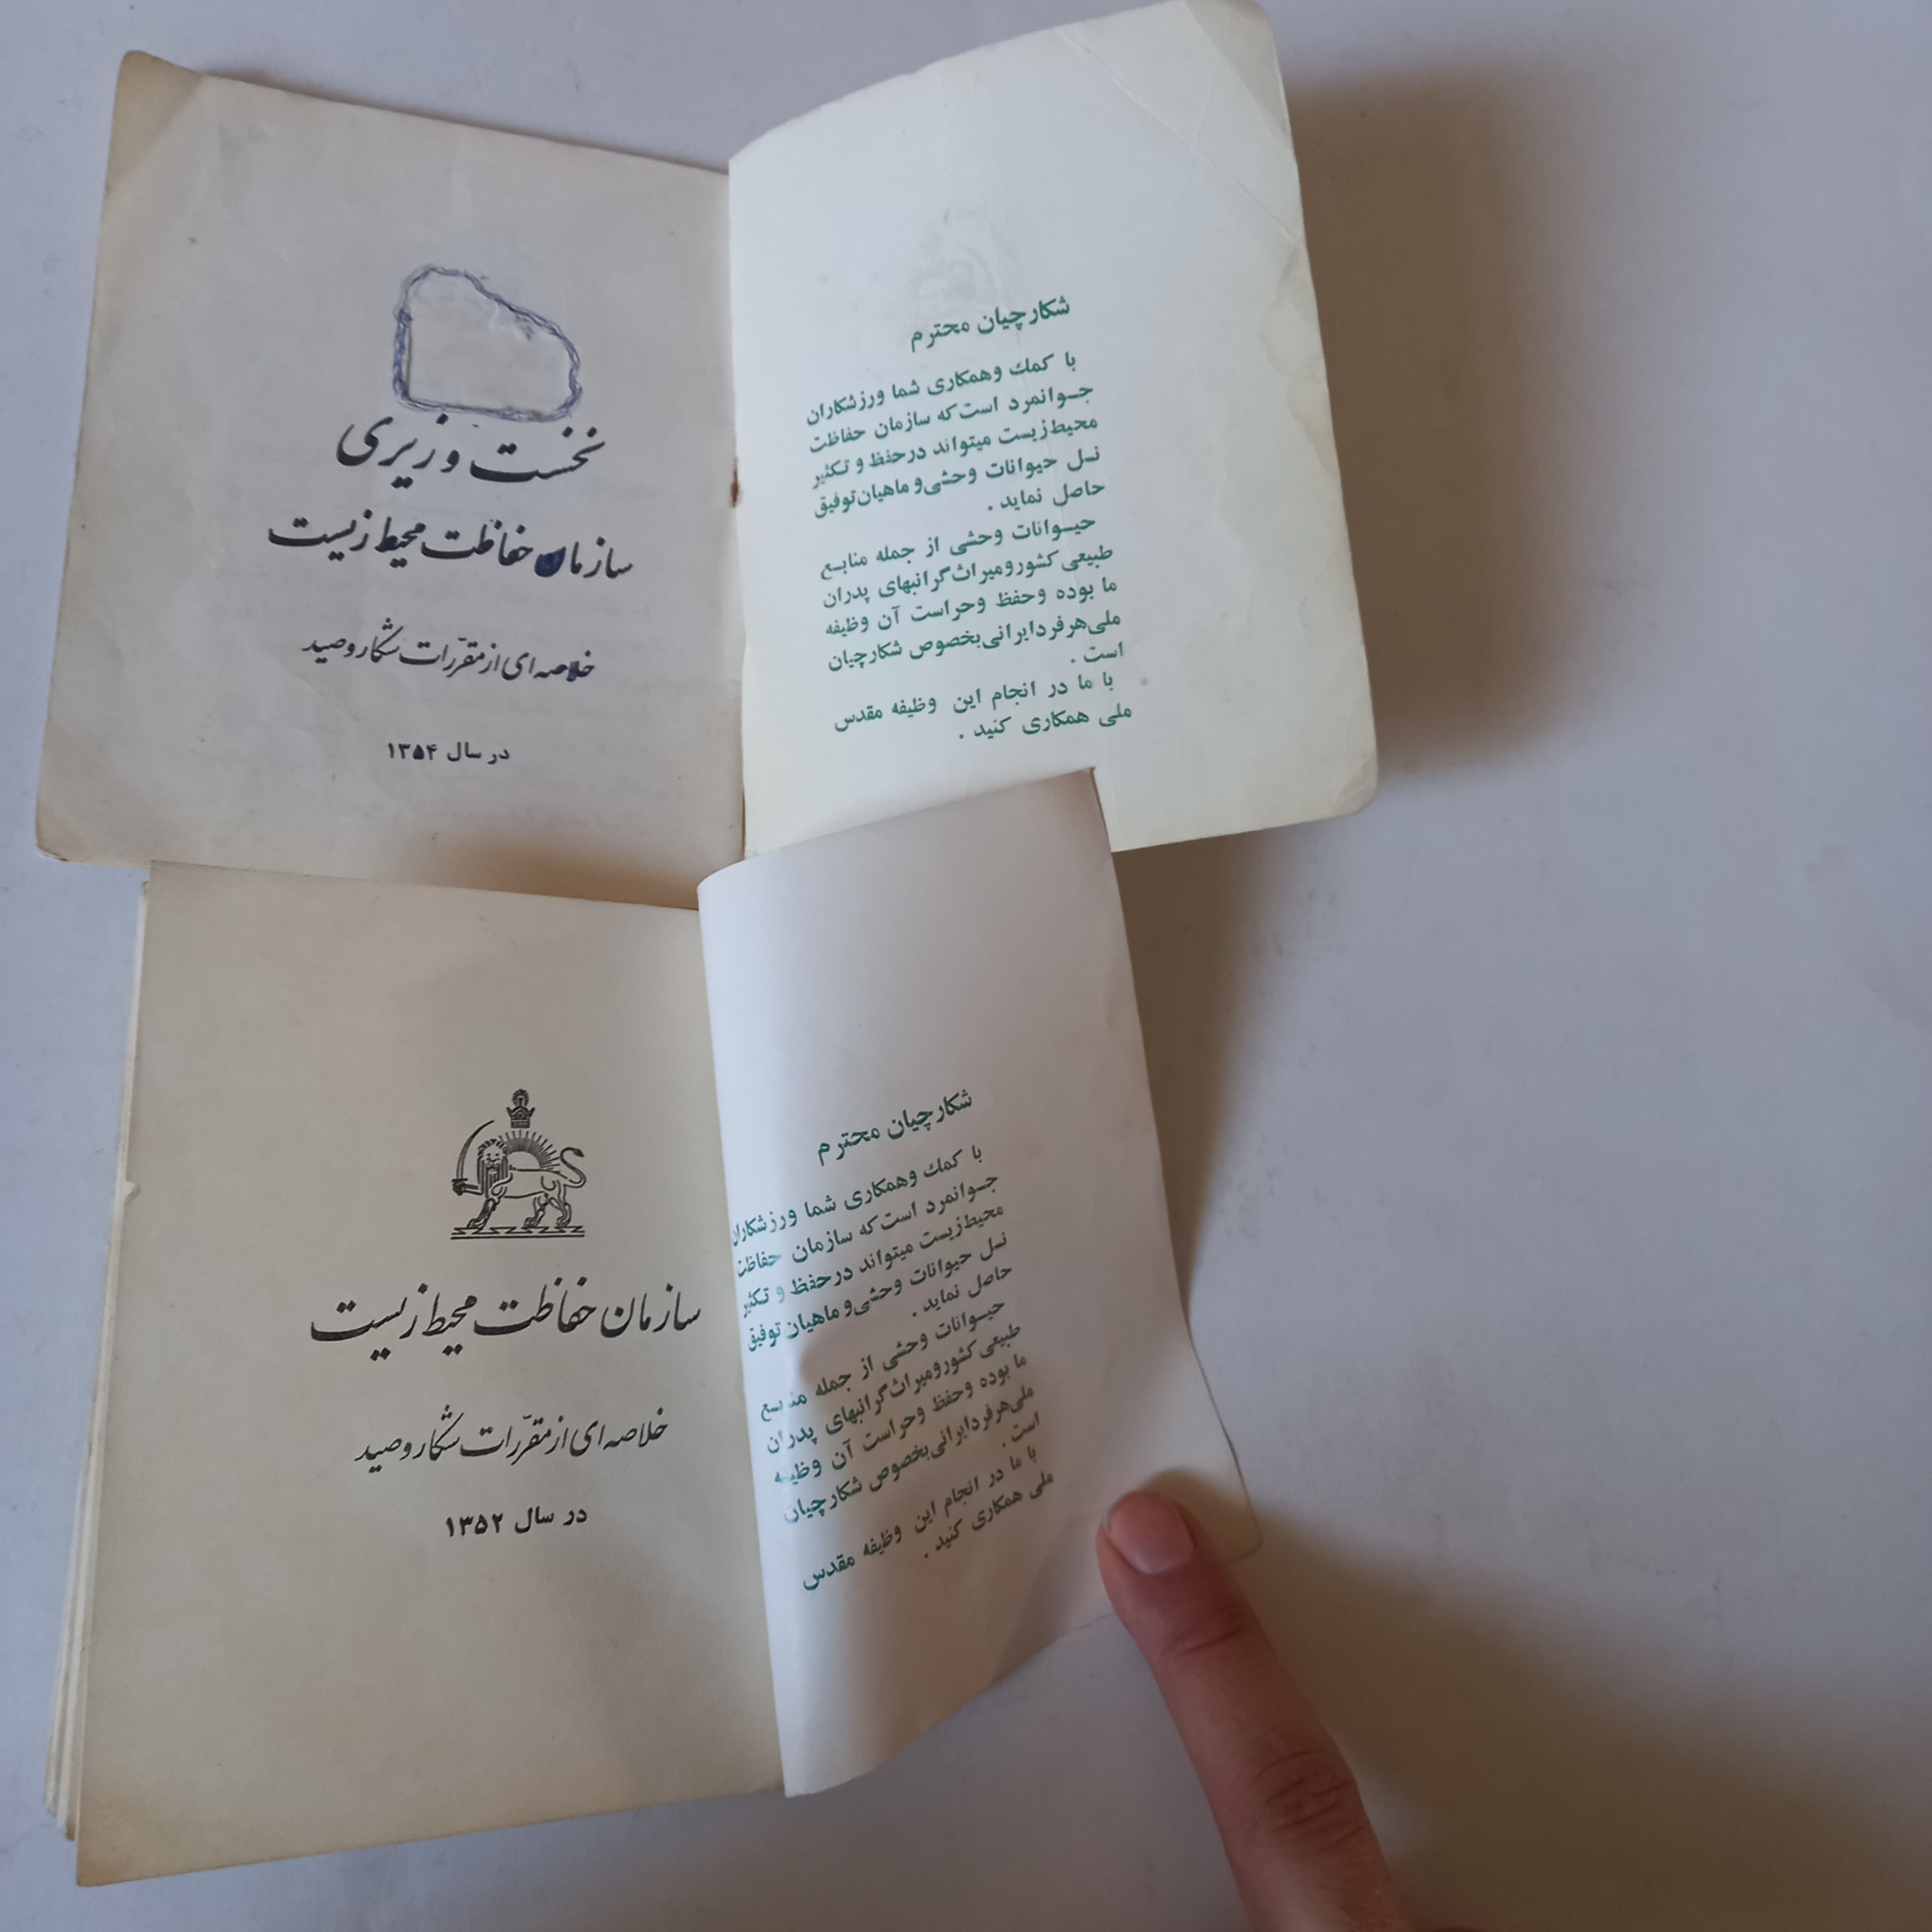 نخست وزیری
سازمان حفاظت محیط زیست
خلاصه ای از مقررّات شکار و صید
در سال ۱۳۵۴
شکارچیان محترم
با کمك وهمکاری شما ورزشکاران
جـوانمرد است که سازمان حفاظت
محیط زیست میتواند درحفظ و تـکثیر
نـسل حیوانات وحشی و ماهیان توفیق
حاصل نماید .
حیـوانات وحشی از جمله منابـع
طبیعی کشور و میراث گرانبهای پدران
ما بوده وحفظ وحراست آن وظیفه
ملی هر فرد ایرانی بخصوص شکارچیان
است .
با ما در انجام این وظیفه مقدس
ملی همکاری کنید .
سازمان حفاظت محیط زیست
خلاصه ای از مقررّات شکار و صید
در سال ۱۳۵۲
شکارچیان محترم
با کمك وهمکاری شما ورزشکاران
جـوانمرد است که سازمان حفاظت
محیط زیست میتواند درحفظ و تـکثیر
نـسل حیوانات وحشی و ماهیان توفیق
حاصل نماید .
حیـوانات وحشی از جمله منابـع
طبیعی کشور و میراث گرانبهای پدران
ما بوده وحفظ وحراست آن وظیفه
ملی هر فرد ایرانی بخصوص شکارچیان
است .
با ما در انجام این وظیفه مقدس
ملی همکاری کنید .